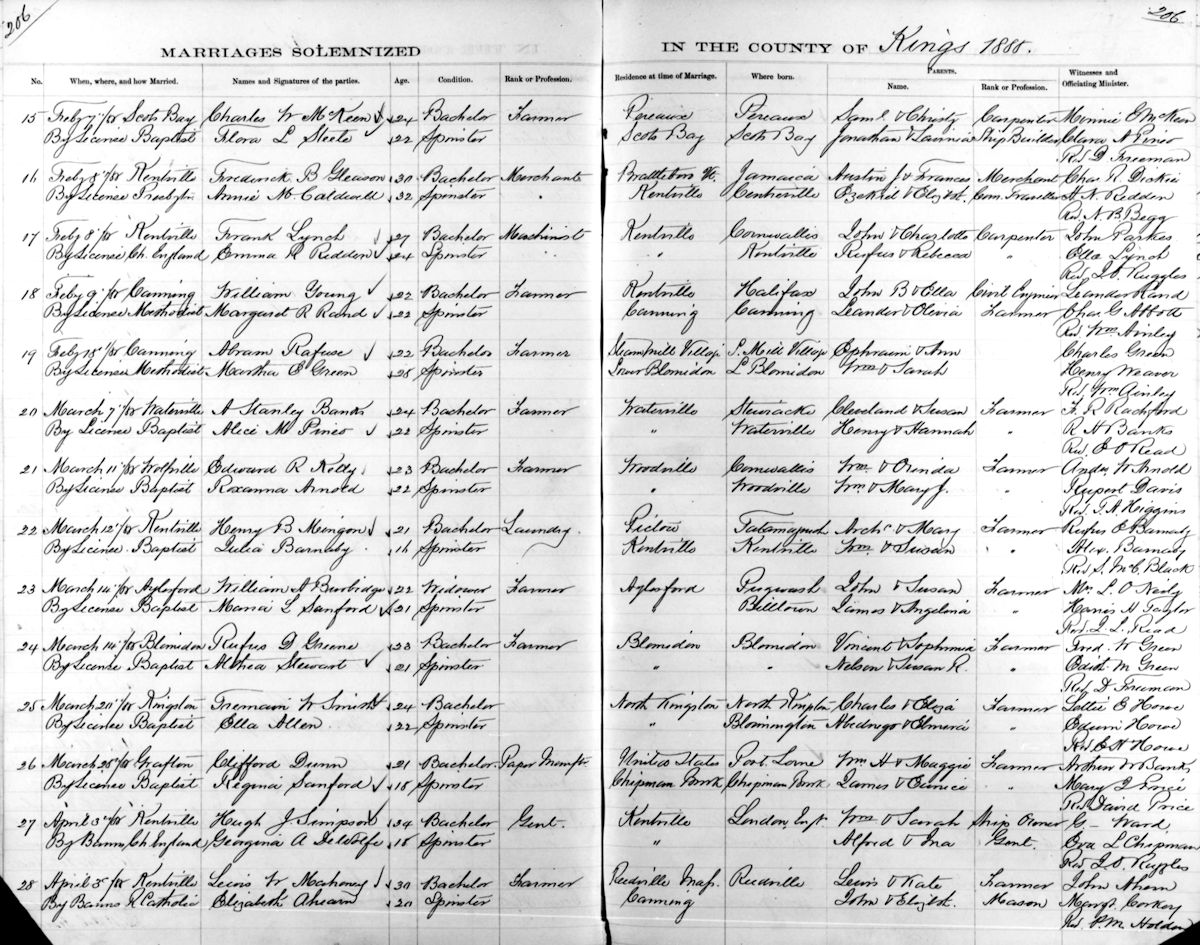 206
206
MARRIAGES SOLEMNIZED IN THE COUNTY OF Kings 1888.
No. When, where, and how Married. Names and Signatures of the parties. Age. Condition. Rank or Profession. Residence at time of Marriage. Where born. PARENTS. Name. Rank or Profession. Witnesses and Officiating Minister.
15 Feby 7 /88 Scots Bay Charles W McKeen 24 Bachelor Farmer Pereaux Pereaux Saml & Christy Carpenter Minnie E McKeen
By License Baptist Flora L Steele 22 Spinster Scots Bay Scots Bay Jonathan & Lavinia Ship Builder Clara A Pineo
Rev D Freeman
16 Feby 8 /88 Kentville Frederick B Gleason 30 Bachelor Merchant Brattleboro Vt. Jamaica Austin J & Frances Merchant Chas R Dickie
By License Presbytn Annie M Caldwell 32 Spinster Kentville Centreville Ezekiel & Elizbt. Com. Traveller H. N. Redden
Rev N B Begg
17 Feby 8 /88 Kentville Frank Lynch 27 Bachelor Machinist Kentville Cornwallis John & Charlotte Carpenter John Parkes
By License Ch. England Emma R Redden 24 Spinster " Kentville Rufus & Rebecca " Ella Lynch
Rev J. O. Ruggles
18 Feby 9 /88 Canning William Young 22 Bachelor Farmer Kentville Halifax John B & Ella Civil Engineer Leander Rand
By License Methodist Margaret R Rand 22 Spinster Canning Canning Leander & Olevia Farmer Chas. G. Abbott
Rev Wm Ainley
19 Feby 15 /88 Canning Abram Rafuse 22 Bachelor Farmer Steam Mill Village S. Mill Village Ephraim & Ann Charles Green
By License Methodist Martha E Green 28 Spinster Lower Blomidon L Blomidon Wm & Sarah Henry Weaver
Rev Wm Ainley
20 March 7 /88 Waterville A Stanley Banks 24 Bachelor Farmer Waterville Cleveland & Susan Farmer F. R Rachford
By License Baptist Alice M Pineo 22 Spinster " Waterville Henry & Hannah " R H Banks
Rev. E O Read
21 March 11 /88 Wolfville Edward R Kelly 23 Bachelor Farmer Woodville Cornwallis Wm & Orinda Farmer Andw W Arnold
By License Baptist Roxanna Arnold 22 Spinster " Woodville Wm & Mary J. " Rupert Davis
Rev. T. A. Higgins
22 March 12 /88 Kentville Henry B Mingo 21 Bachelor Laundry. Pictou Tatamagouch Archd & Mary Farmer Rufus E Barnaby
By License Baptist Julia Barnaby 16 Spinster Kentville Kentville Wm & Susan " Alex. Barnaby
Rev S. McC. Black
23 March 14 /88 Aylesford William A Burbidge 22 Widower Farmer Aylesford Pugwash John & Susan Farmer Mr. L. O Neily
By License Baptist Maria L Sanford 21 Spinster Billtown James & Angelina " Harris H Taylor
Rev. J. L. Read
24 March 14 /88 Blomidon Rufus D Greene 23 Bachelor Farmer Blomidon Blomidon Vincent & Sophronia Farmer Fred. W Green
By License Baptist Althea Stewart 21 Spinster " " Nelson & Susan R. " Edith M Green
Rev D Freeman
25 March 20 /88 Kingston Tremain W Smith 24 Bachelor North Kingston North Kingston Charles & Eliza Farmer Lottie E Howe
By License Baptist Ella Allen 22 Spinster " Bloomington Abednego & Elmira " Edwin Howe
Rev. E H Howe
26 March 28 /88 Grafton Clifford Dunn 21 Bachelor. Paper Manuftr United States Port Lorne Wm H & Maggie Farmer Arthur W Banks
By License Baptist Regina Sanford 18 Spinster Chipman Brook Chipman Brook James & Eunice " Mary J Price
Rev David Price
27 April 3 /88 Kentville Hugh J Simpson 24 Bachelor Gent. Kentville London, Engt Wm & Sarah Ship Owner G— Ward,
By Banns, Ch England Georgina A DeWolfe 18 Spinster " Alfred & Ina Gent. Eva L Chipman
Rev J. O. Ruggles
28 April 3 /88 Kentville Lewis W Mahoney 30 Bachelor Farmer Reedville Mass. Reedville Lewis & Kate Farmer John Ahern
By Banns R Catholic Elizabeth Ahearn 20 Spinster Canning John & Elizbt. Mason Margt. Corkery
Rev. P. M. Holden